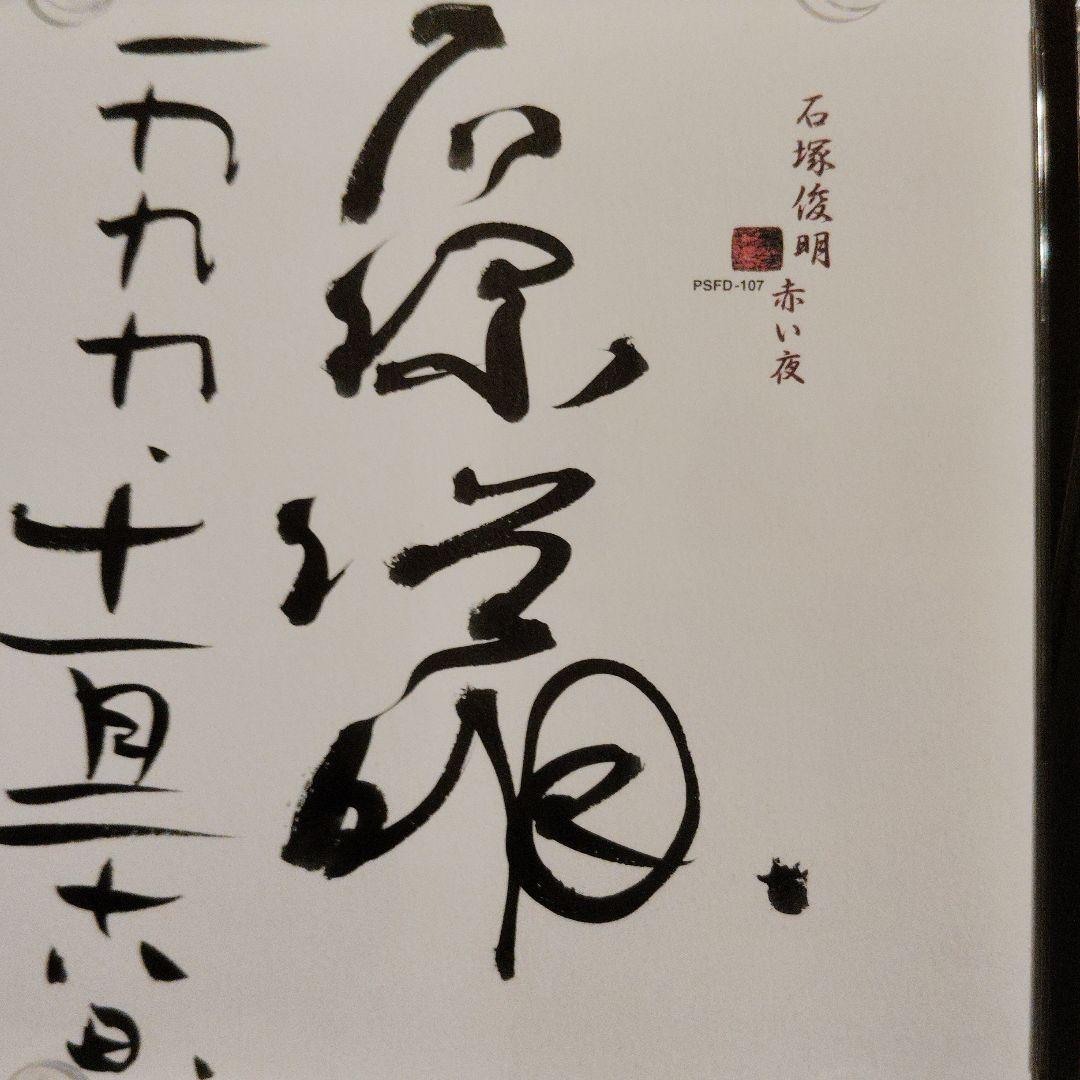 石塚俊明
赤い夜
PSFD-107
石塚俊明.
一九九九.十一月二六日.